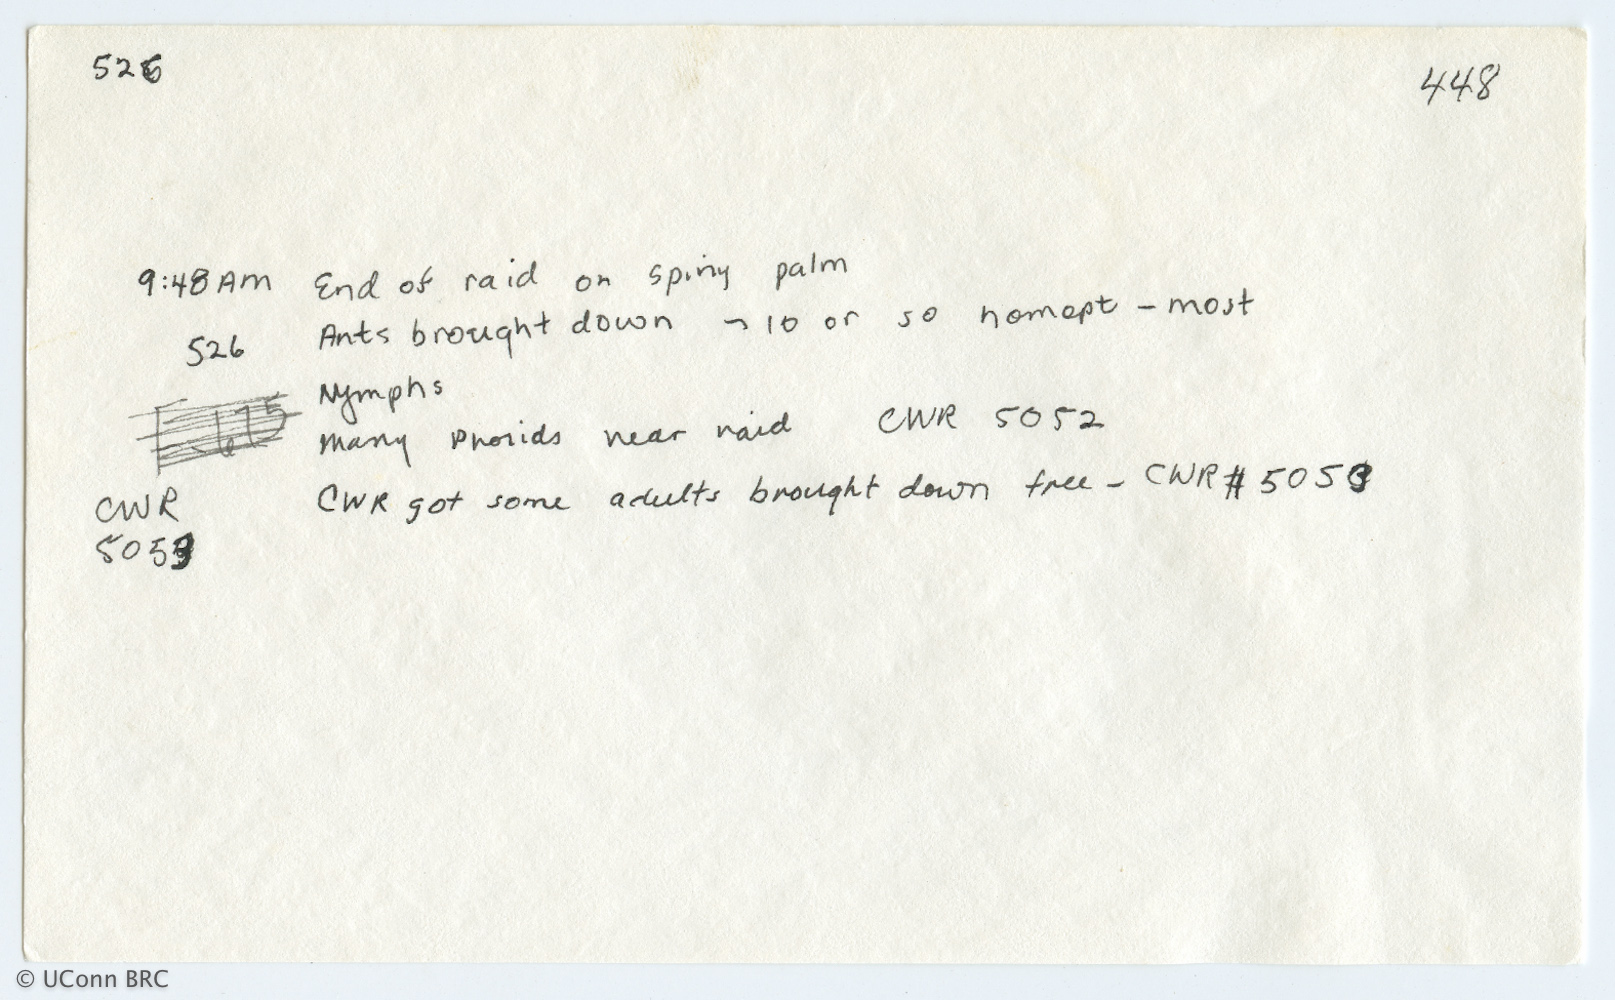 526
448
9:48 AM End of raid on spiny palm
526 Ants brought down ~ 10 or so homopt - most
Nymphs
675
Many Phorids near raid CWR 5052
CWR CWR got some adults brought down free - CWR # 5053
5053
© UConn BRC